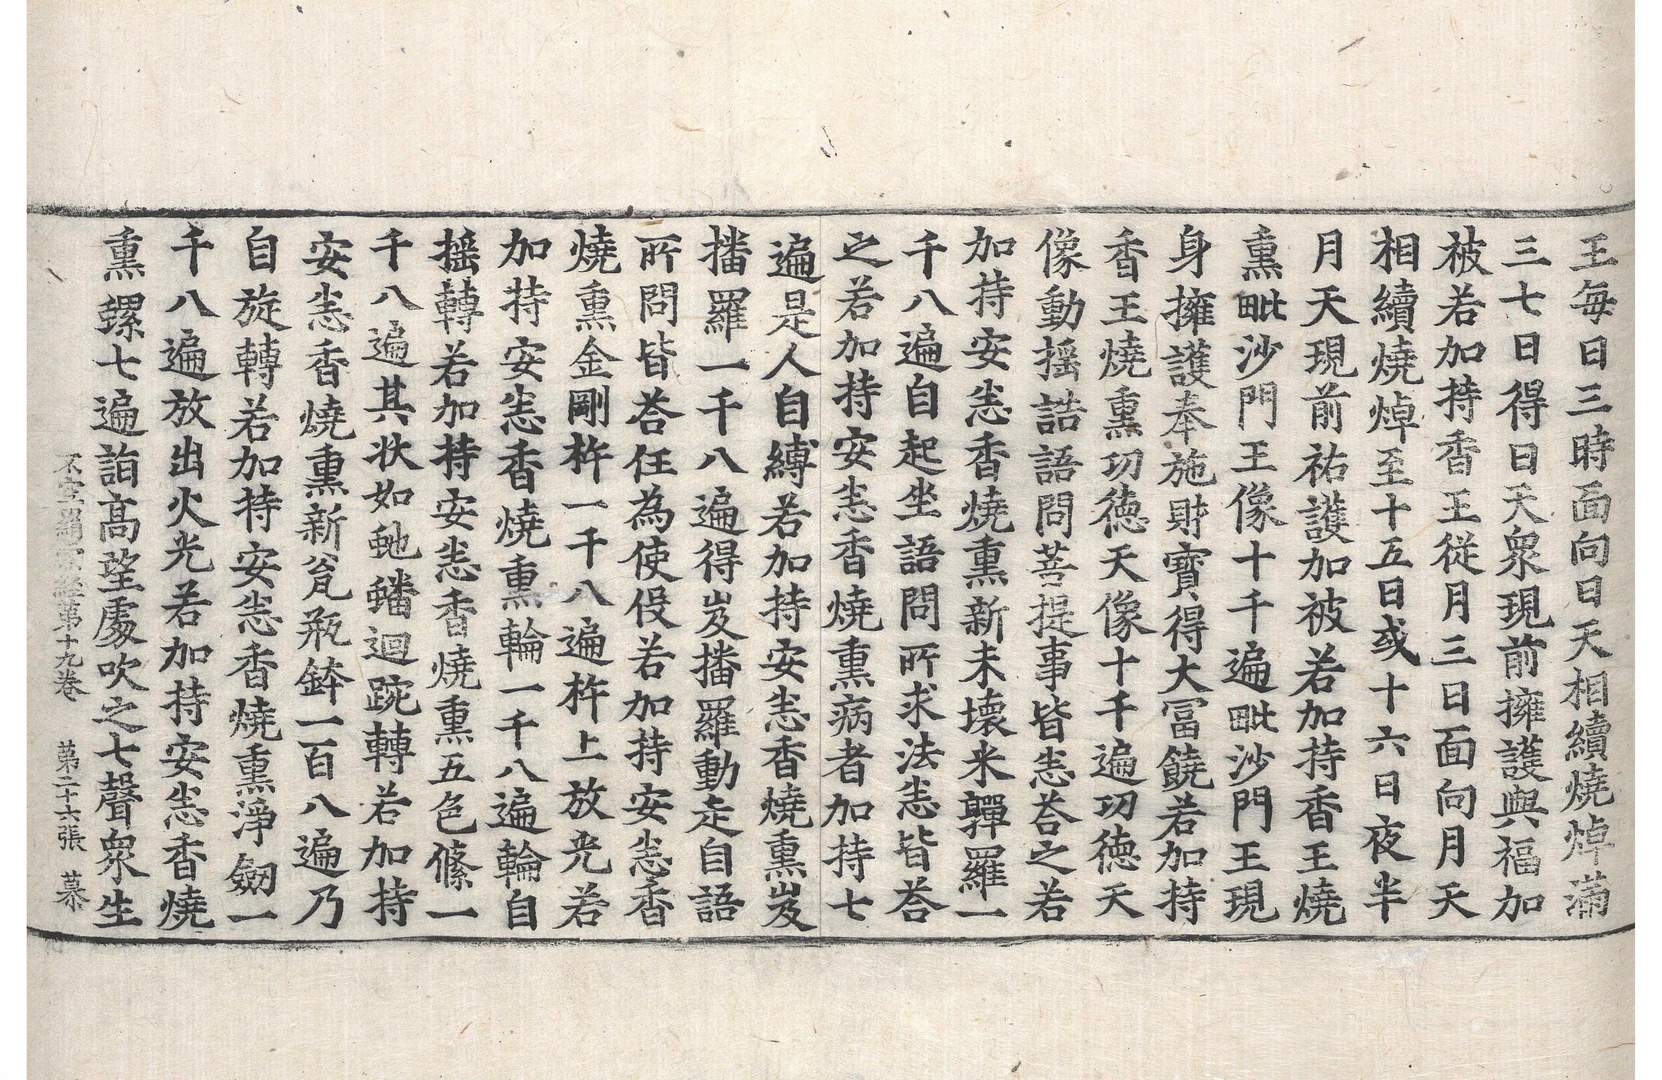 王每日三時面向日天相續燒焯滿
三七日得日天衆現前擁護與福加
被若加持香王從月三日面向月天
相續燒焯至十五日或十六日夜半
月天現前祐護加被若加持香王燒
熏毗沙門王像十千遍毗沙門王現
身擁護奉施財寶得大冨饒若加持
香王燒熏功徳天像十千遍功徳天
像動搖誥語問菩提事皆恙荅之若
加持安恙香燒熏新未壞米軃羅一
千八遍自起坐語問所求法恙皆荅
之若加持安恙香燒熏病者加持七
遍是人自縛若加持安恙香燒熏岌
播羅一千八遍得岌播羅動走自語
所問皆荅任為使伇若加持安恙香
燒熏金剛杵一千八遍杵上放光若
加持安恙香燒熏輪一千八遍輪自
搖轉若加持安恙香燒熏五色絛一
千八遍其狀如虵蟠迴踠轉若加持
安恙香燒熏新瓮瓶鉢一百八遍乃
自旋轉若加持安恙香燒熏淨劒一
千八遍放出火光若加持安恙香燒
熏螺七遍詣高望處吹之七聲衆生
不空羂索經第十九卷 第二十六張 慕